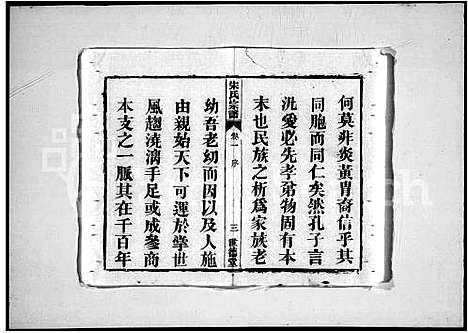 何莫非炎黃冑裔信乎其
同胞而同仁矣然孔子言
汎愛必先孝弟物固有本
末也民族之析爲家族老
朱氏宗譜 卷一 序 三 世德堂
幼吾老幼而因以及人施
由親始天下可運於掌世
風趨澆漓手足或成參商
本支之一脈其在千百年